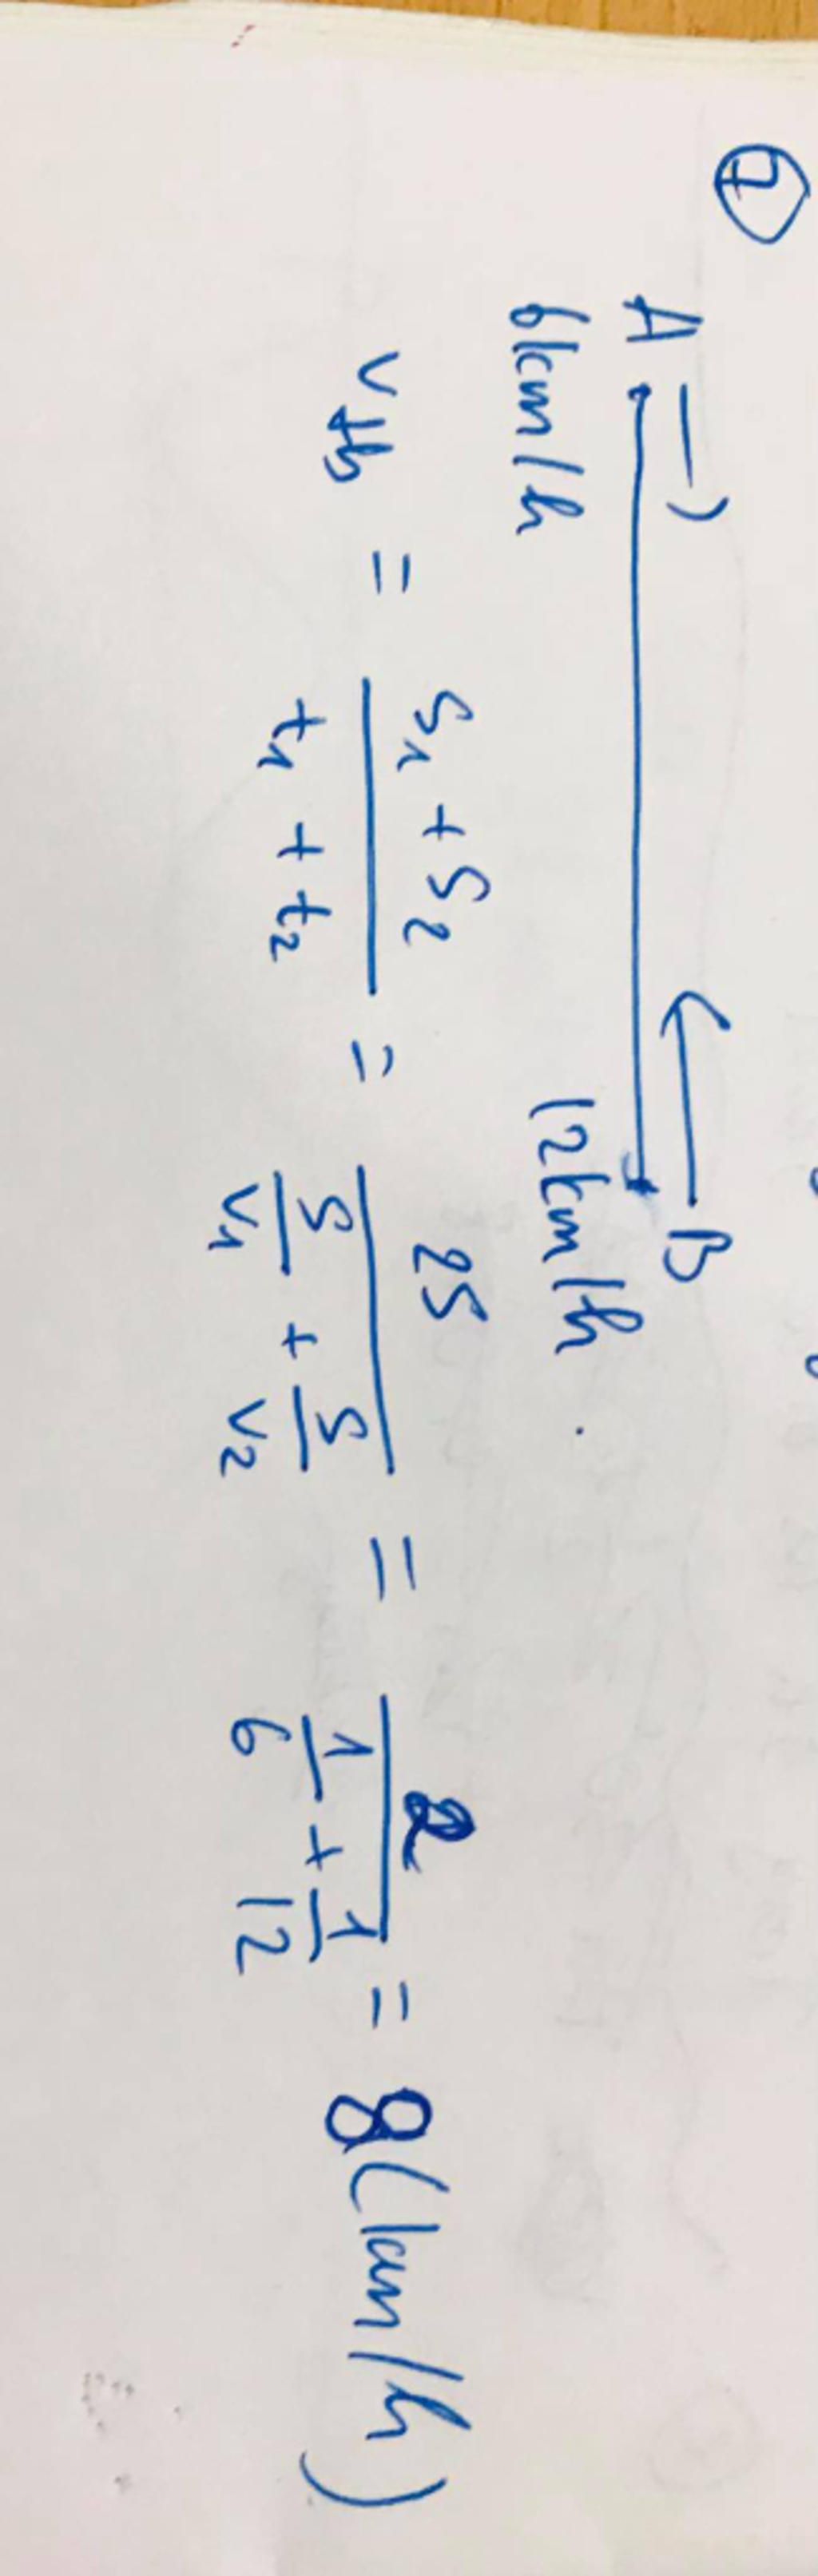 7
A → ← B
6km/h 12km/h.
v_tb = (S_1 + S_2)/(t_1 + t_2) = 2S/(S/v_1 + S/v_2) = 2/(1/6 + 1/12) = 8(km/h)